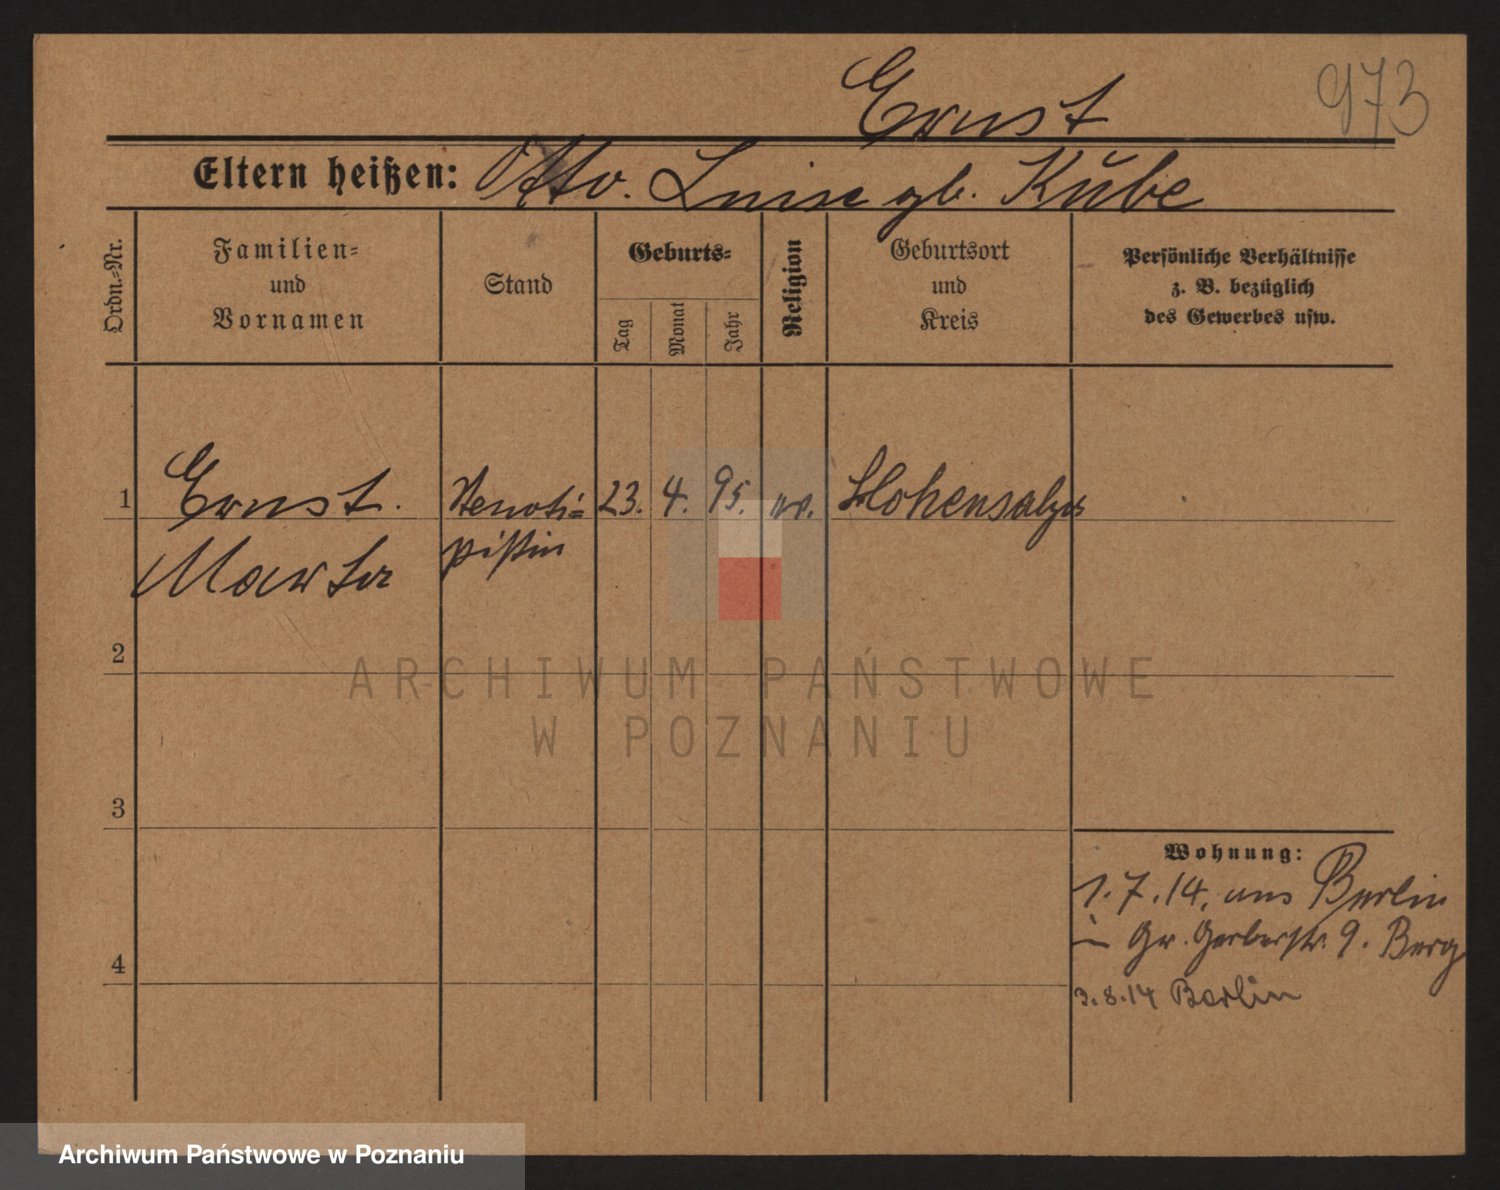 Ernst
973
Eltern heißen: Otto. Luise gb. Kube
Ordn.-Nr.
Familien-
und
Vornamen
Stand
Geburts-
Tag
Monat
Jahr
Religion
Geburtsort
und
Kreis
Persönliche Verhältnisse
z. B. bezüglich
des Gewerbes usw.
1
Ernst. Stenoti- 23. 4. 95. ev. Hohensalza
Martha pistin
2
ARCHIWUM PAŃSTWOWE
W POZNANIU
3
Wohnung:
1.7.14. aus Berlin
in Gr. Gerberstr. 9. Berg
4
3.8.14 Berlin
Archiwum Państwowe w Poznaniu